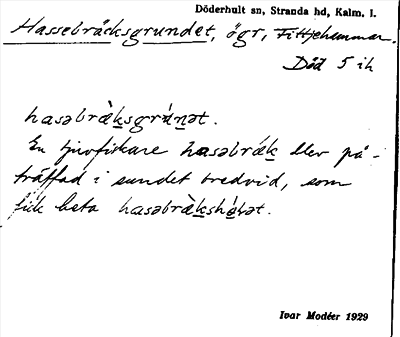 Döderhult sn, Stranda hd, Kalm. l.
Hassebräcksgrundet, ögr, Fittjehammar.
Död 5 ih
hasəbrɛ̀ksgrúnət.
En tjuvfiskare hasəbrɛ́k blev på-
träffad i sundet bredvid, som
fick heta
Ivar Modéer 1929